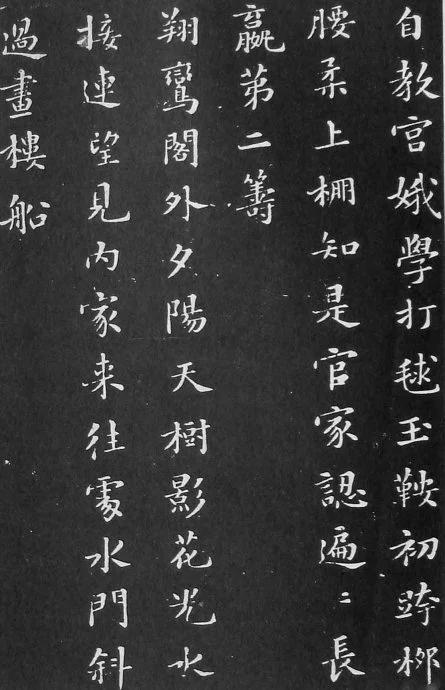 自教宮娥學打毬玉鞍初跨柳
腰柔上棚知是官家認遍〻長
嬴第二籌
翔鸞閣外夕陽天樹影花光水
接連望見内家来往處水門斜
過畫樓船